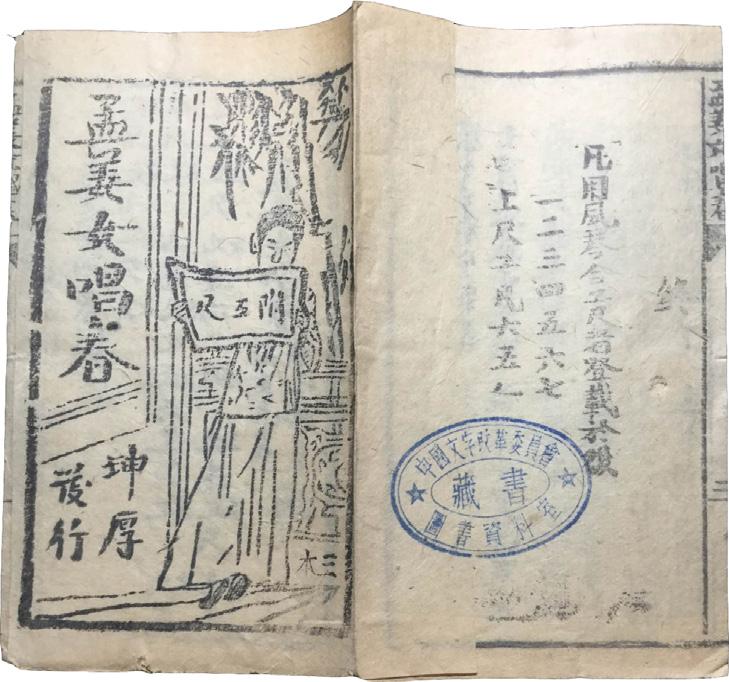 孟姜女唱春
凡用風琴合工尺者登載於後
一二三四五六七
上尺工凡六五乙
中國文字改革委員會
藏書
圖書資料室
孟姜女唱春
坤厚
發行